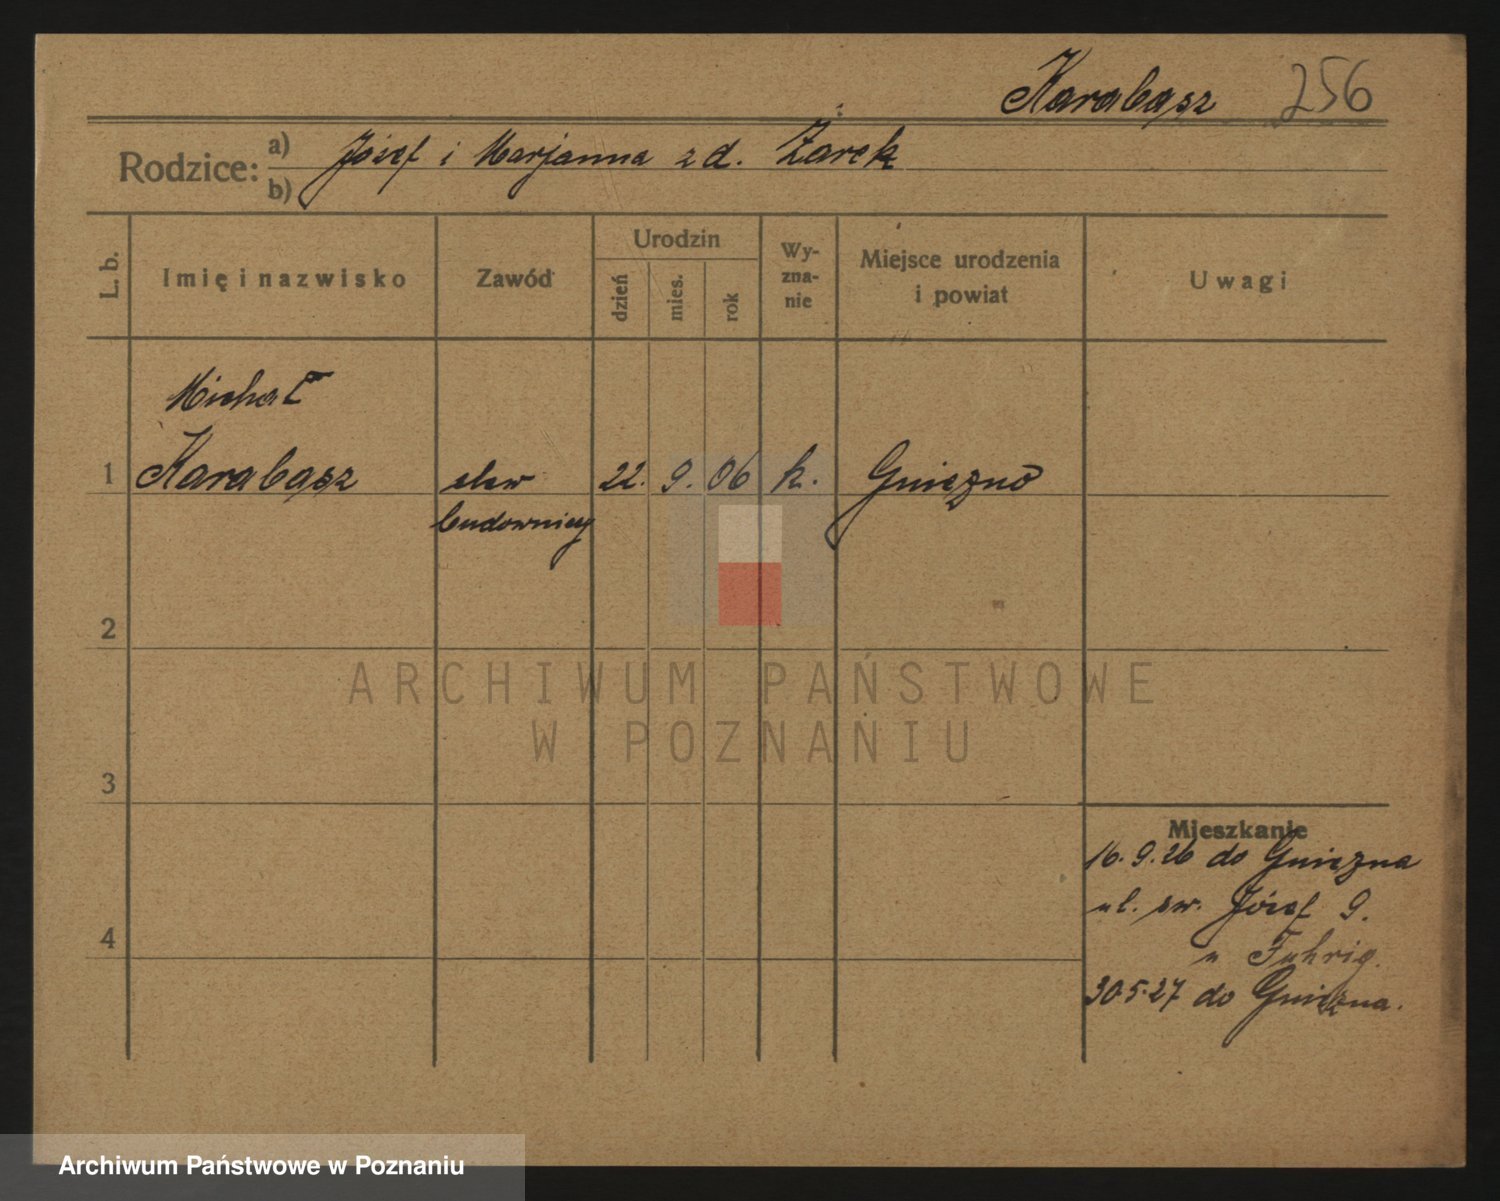 Karabasz 256
Rodzice: a) Józef i Marjanna z d. Żarek
b)
L. b. Imię i nazwisko Zawód Urodzin Wy-zna-nie Miejsce urodzenia i powiat Uwagi
dzień mies. rok
Michał
1 Karabasz elew 22. 9. 06 k. Gniezno
budowniczy
2
ARCHIWUM PAŃSTWOWE
W POZNANIU
3
Mieszkanie
16. 9. 26 do Gniezna
ul. św. Józef 9.
4
u Fuhrig.
30.5.27 do Gniezna.
Archiwum Państwowe w Poznaniu